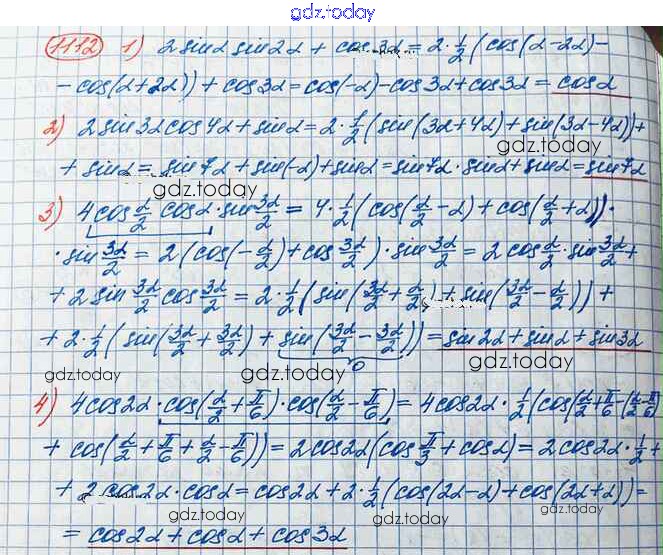 gdz.today
1112 1) 2 sin α sin 2α + cos 3α = 2 · 1/2 (cos(α - 2α) -
- cos(α + 2α)) + cos 3α = cos(-α) - cos 3α + cos 3α = cos α
2) 2 sin 3α cos 4α + sin α = 2 · 1/2 (sin(3α + 4α) + sin(3α - 4α)) +
+ sin α = sin 7α + sin(-α) + sin α = sin 7α · sin α + sin α = sin 7α
gdz.today gdz.today
3) 4 cos α/2 cos α · sin 3α/2 = 4 · 1/2 (cos(α/2 - α) + cos(α/2 + α)) ·
· sin 3α/2 = 2 (cos(-α/2) + cos 3α/2) · sin 3α/2 = 2 cos α/2 · sin 3α/2 +
+ 2 sin 3α/2 cos 3α/2 = 2 · 1/2 (sin(3α/2 + α/2) + sin(3α/2 - α/2)) +
+ 2 · 1/2 (sin(3α/2 + 3α/2) + sin(3α/2 - 3α/2)) = sin 2α + sin α + sin 3α
0
gdz.today gdz.today
4) 4 cos 2α · cos(α/2 + π/6) · cos(α/2 - π/6) = 4 cos 2α · 1/2 (cos(α/2 + π/6 - (α/2 - π/6)
+ cos(α/2 + π/6 + α/2 - π/6)) = 2 cos 2α (cos π/3 + cos α) = 2 cos 2α · 1/2 +
gdz.today gdz.today
+ 2 cos 2α · cos α = cos 2α + 2 · 1/2 (cos(2α - α) + cos(2α + α)) =
gdz.today gdz.today
= cos 2α + cos α + cos 3α
gdz.today